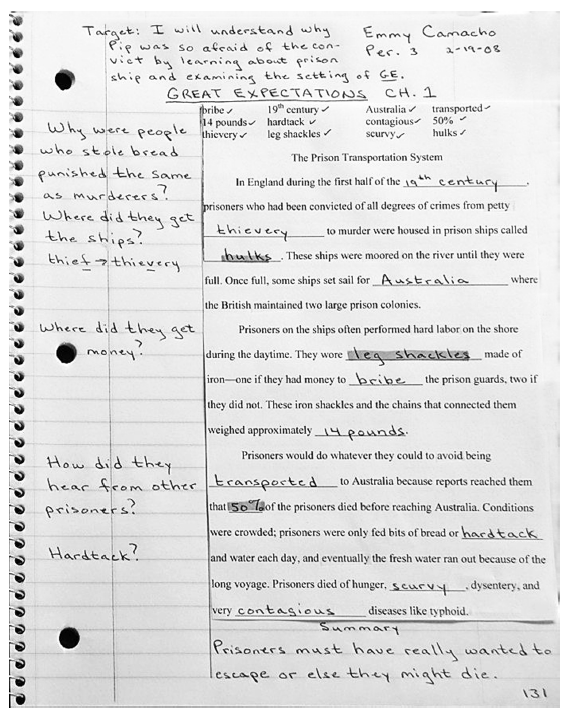 Target: I will understand why Emmy Camacho
Pip was so afraid of the con- Per. 3 2-19-08
vict by learning about prison
ship and examining the setting of GE.
GREAT EXPECTATIONS CH. 1
bribe ✓ 19th century ✓ Australia ✓ transported ✓
14 pounds ✓ hardtack ✓ contagious ✓ 50% ✓
thievery ✓ leg shackles ✓ scurvy ✓ hulks ✓
Why were people
who stole bread
punished the same
as murderers?
Where did they get
the ships?
thief → thievery
The Prison Transportation System
In England during the first half of the 19th century,
prisoners who had been convicted of all degrees of crimes from petty
thievery to murder were housed in prison ships called
hulks. These ships were moored on the river until they were
full. Once full, some ships set sail for Australia where
the British maintained two large prison colonies.
Where did they get
money?
Prisoners on the ships often performed hard labor on the shore
during the daytime. They wore leg shackles made of
iron—one if they had money to bribe the prison guards, two if
they did not. These iron shackles and the chains that connected them
weighed approximately 14 pounds.
How did they
hear from other
prisoners?
Hardtack?
Prisoners would do whatever they could to avoid being
transported to Australia because reports reached them
that 50% of the prisoners died before reaching Australia. Conditions
were crowded; prisoners were only fed bits of bread or hardtack
and water each day, and eventually the fresh water ran out because of the
long voyage. Prisoners died of hunger, scurvy, dysentery, and
very contagious diseases like typhoid.
Summary
Prisoners must have really wanted to
escape or else they might die.
131